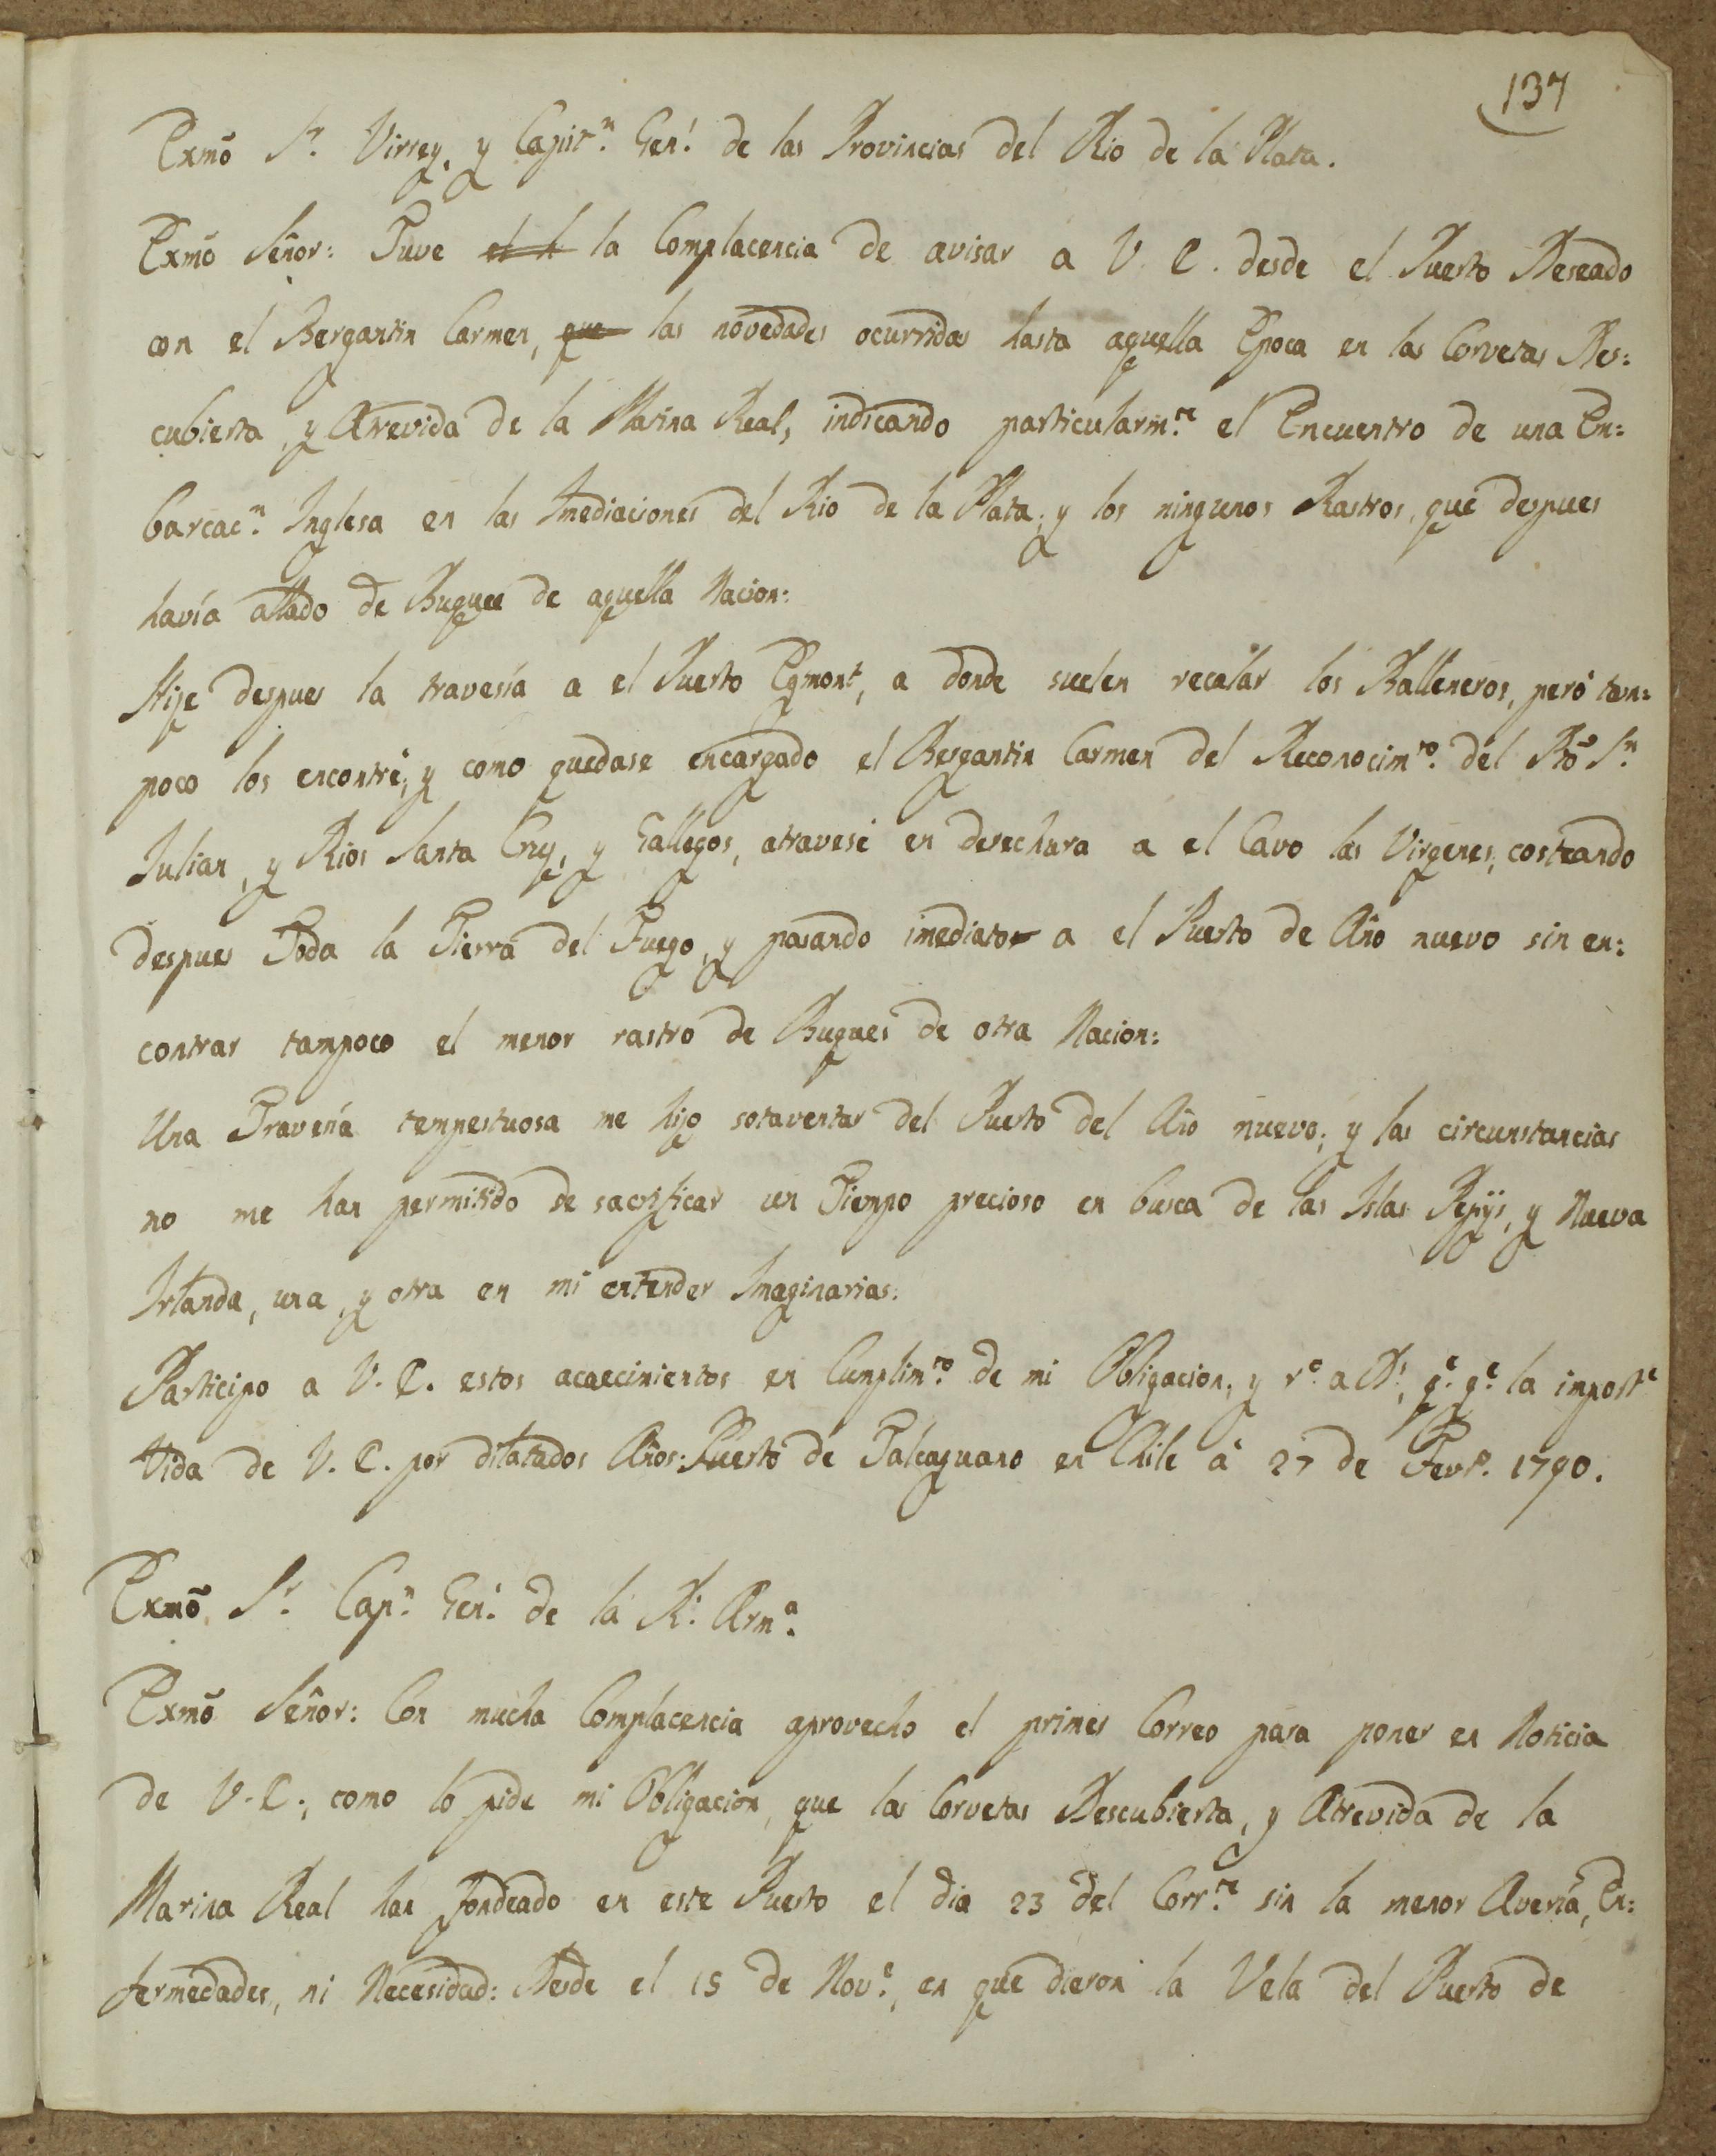 137
Exmõ Sr. Virrey, y Capitn. Genl. de las Provincias del Rio de la Plata.
Exmõ Señor: Tuve el h la Complacencia de avisar a V. E. desde el Puerto Deseado
con el Bergantin Carmen, que las novedades ocurridas hasta aquella Epoca en las Corvetas Des:
cubierta, y Atrevida de la Marina Real, indicando particularmte. el Encuentro de una Em:
barcacn. Inglesa en las Imediaciones del Rio de la Plata; y los ningunos Rastros, que despues
havía allado de Buques de aquella Nacion:
Hize despues la travesía a el Puerto Egmont, a donde suelen recalar los Balleneros, pero tam:
poco los encontré; y como quedase encargado el Bergantin Carmen del Reconocimto. del Pto Sn.
Julian, y Rios Santa Cruz, y Gallegos, atravesé en derechura a el Cavo las Virgenes, costeando
despues Toda la Tierra del Fuego, y pasando imediato a el Puerto de Año nuevo sin en:
contrar tampoco el menor rastro de Buques de otra Nacion:
Una Travesía tempestuosa me hizo sotaventar del Puerto del Año nuevo; y las circunstancias
no me han permitido de sacrificar un Tiempo precioso en busca de las Islas Pepijs, y Nueva
Irlanda, una, y otra en mi entender Imaginarias:
Participo a V. E. estos acaecimientos en Cumplimto. de mi Obligacion, y re. a Ds. qe. ge. la importe
Vida de V. E. por dilatados Años: Puerto de Talcaguano en Chile a 27 de Fevro. 1790.
Exmõ Sr. Capn. Gen. de la Rl. Arma.
Exmõ Señor: Con mucha Complacencia aprovecho el primer Correo para poner en Noticia
de V. E., como lo pide mi Obligación, que las Corvetas Descubierta, y Atrevida de la
Marina Real han fondeado en este Puerto el dia 23 del Corrte. sin la menor Avería, En:
fermedades, ni Necesidad: Desde el 15 de Nove., en que dieron la Vela del Puerto de